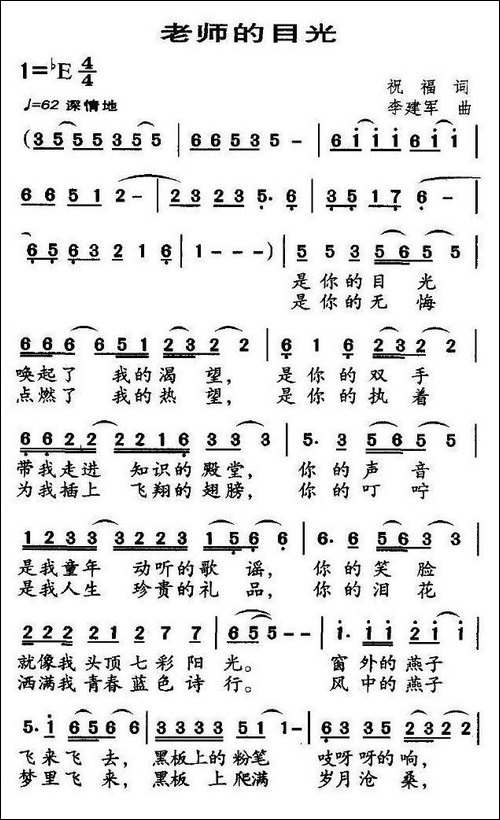 老师的目光
1=♭E 4/4
祝福 词
♩=62 深情地
李建军 曲
(3 5 5 5 3 5 5 | 6 6 5 3 5 - | 6 i i i 6 i i |
6 6 5 1 2 - | 2 3 2 3 5. 6 | 3 5 1 7 6 - |
6 5 6 3 2 1 6 | 1 - - - ) | 5 5 3 5 6 5 5 |
是你的目光
是你的无悔
6 6 6 6 6 5 1 2 3 2 2 | 6 1 6 2 3 2 2 |
唤起了 我的渴望, 是你的双手
点燃了 我的热望, 是你的执着
6 6 2 2 2 2 1 6 3 3 3 | 5. 3 5 6 5 5 |
带我走进 知识的殿堂, 你的声音
为我插上 飞翔的翅膀, 你的叮咛
1 2 3 3 3 2 2 3 1 5 6 6 | 6. 5 5 6 3 3 |
是我童年 动听的歌谣, 你的笑脸
是我人生 珍贵的礼品, 你的泪花
2 2 2 2 1 2 7 7 | 6 5 5 - - | i. i i 2 i i |
就像我 头顶七彩阳光。 窗外的燕子
洒满我 青春蓝色诗行。 风中的燕子
5. i 6 5 6 6 | 3 3 3 3 3 3 5 1 1 - | 6 3 3 5 2 3 2 2 |
飞来飞去, 黑板上的粉笔 吱呀呀的响,
梦里飞来, 黑板上爬满 岁月沧桑,